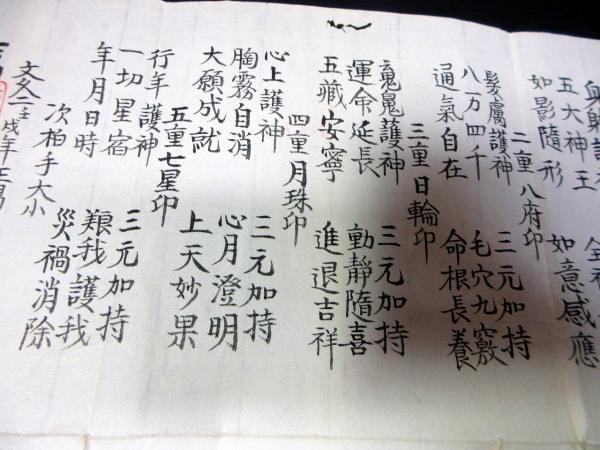 五大神王
如影隨形 如意感應
二重八府印
髮膚護神 三元加持
八万四千 毛穴九竅
通氣自在 命根長養
三重日輪印
護神 三元加持
運命延長 動靜隨喜
五藏安寧 進退吉祥
四重月珠印
心上護神 三元加持
胸霧自消 心月澄明
大願成就 上天妙果
五重七星印
行年護神 三元加持
一切星宿 艱我護我
年月日時 災禍消除
次拍手大小
文久二壬戌年正月